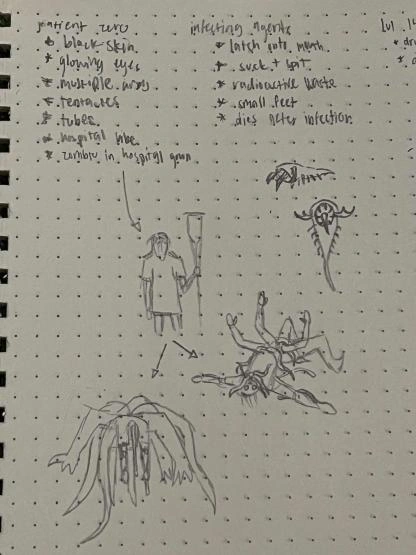 patient zero
* black skin
* glowing eyes
* multiple arms
* tentacles
* tubes
* hospital
* zombie in hospital gown
infecting agents
* latch onto mouth
* suck + bit
* radioactive waste
* small feet
* dies after infection
lvl